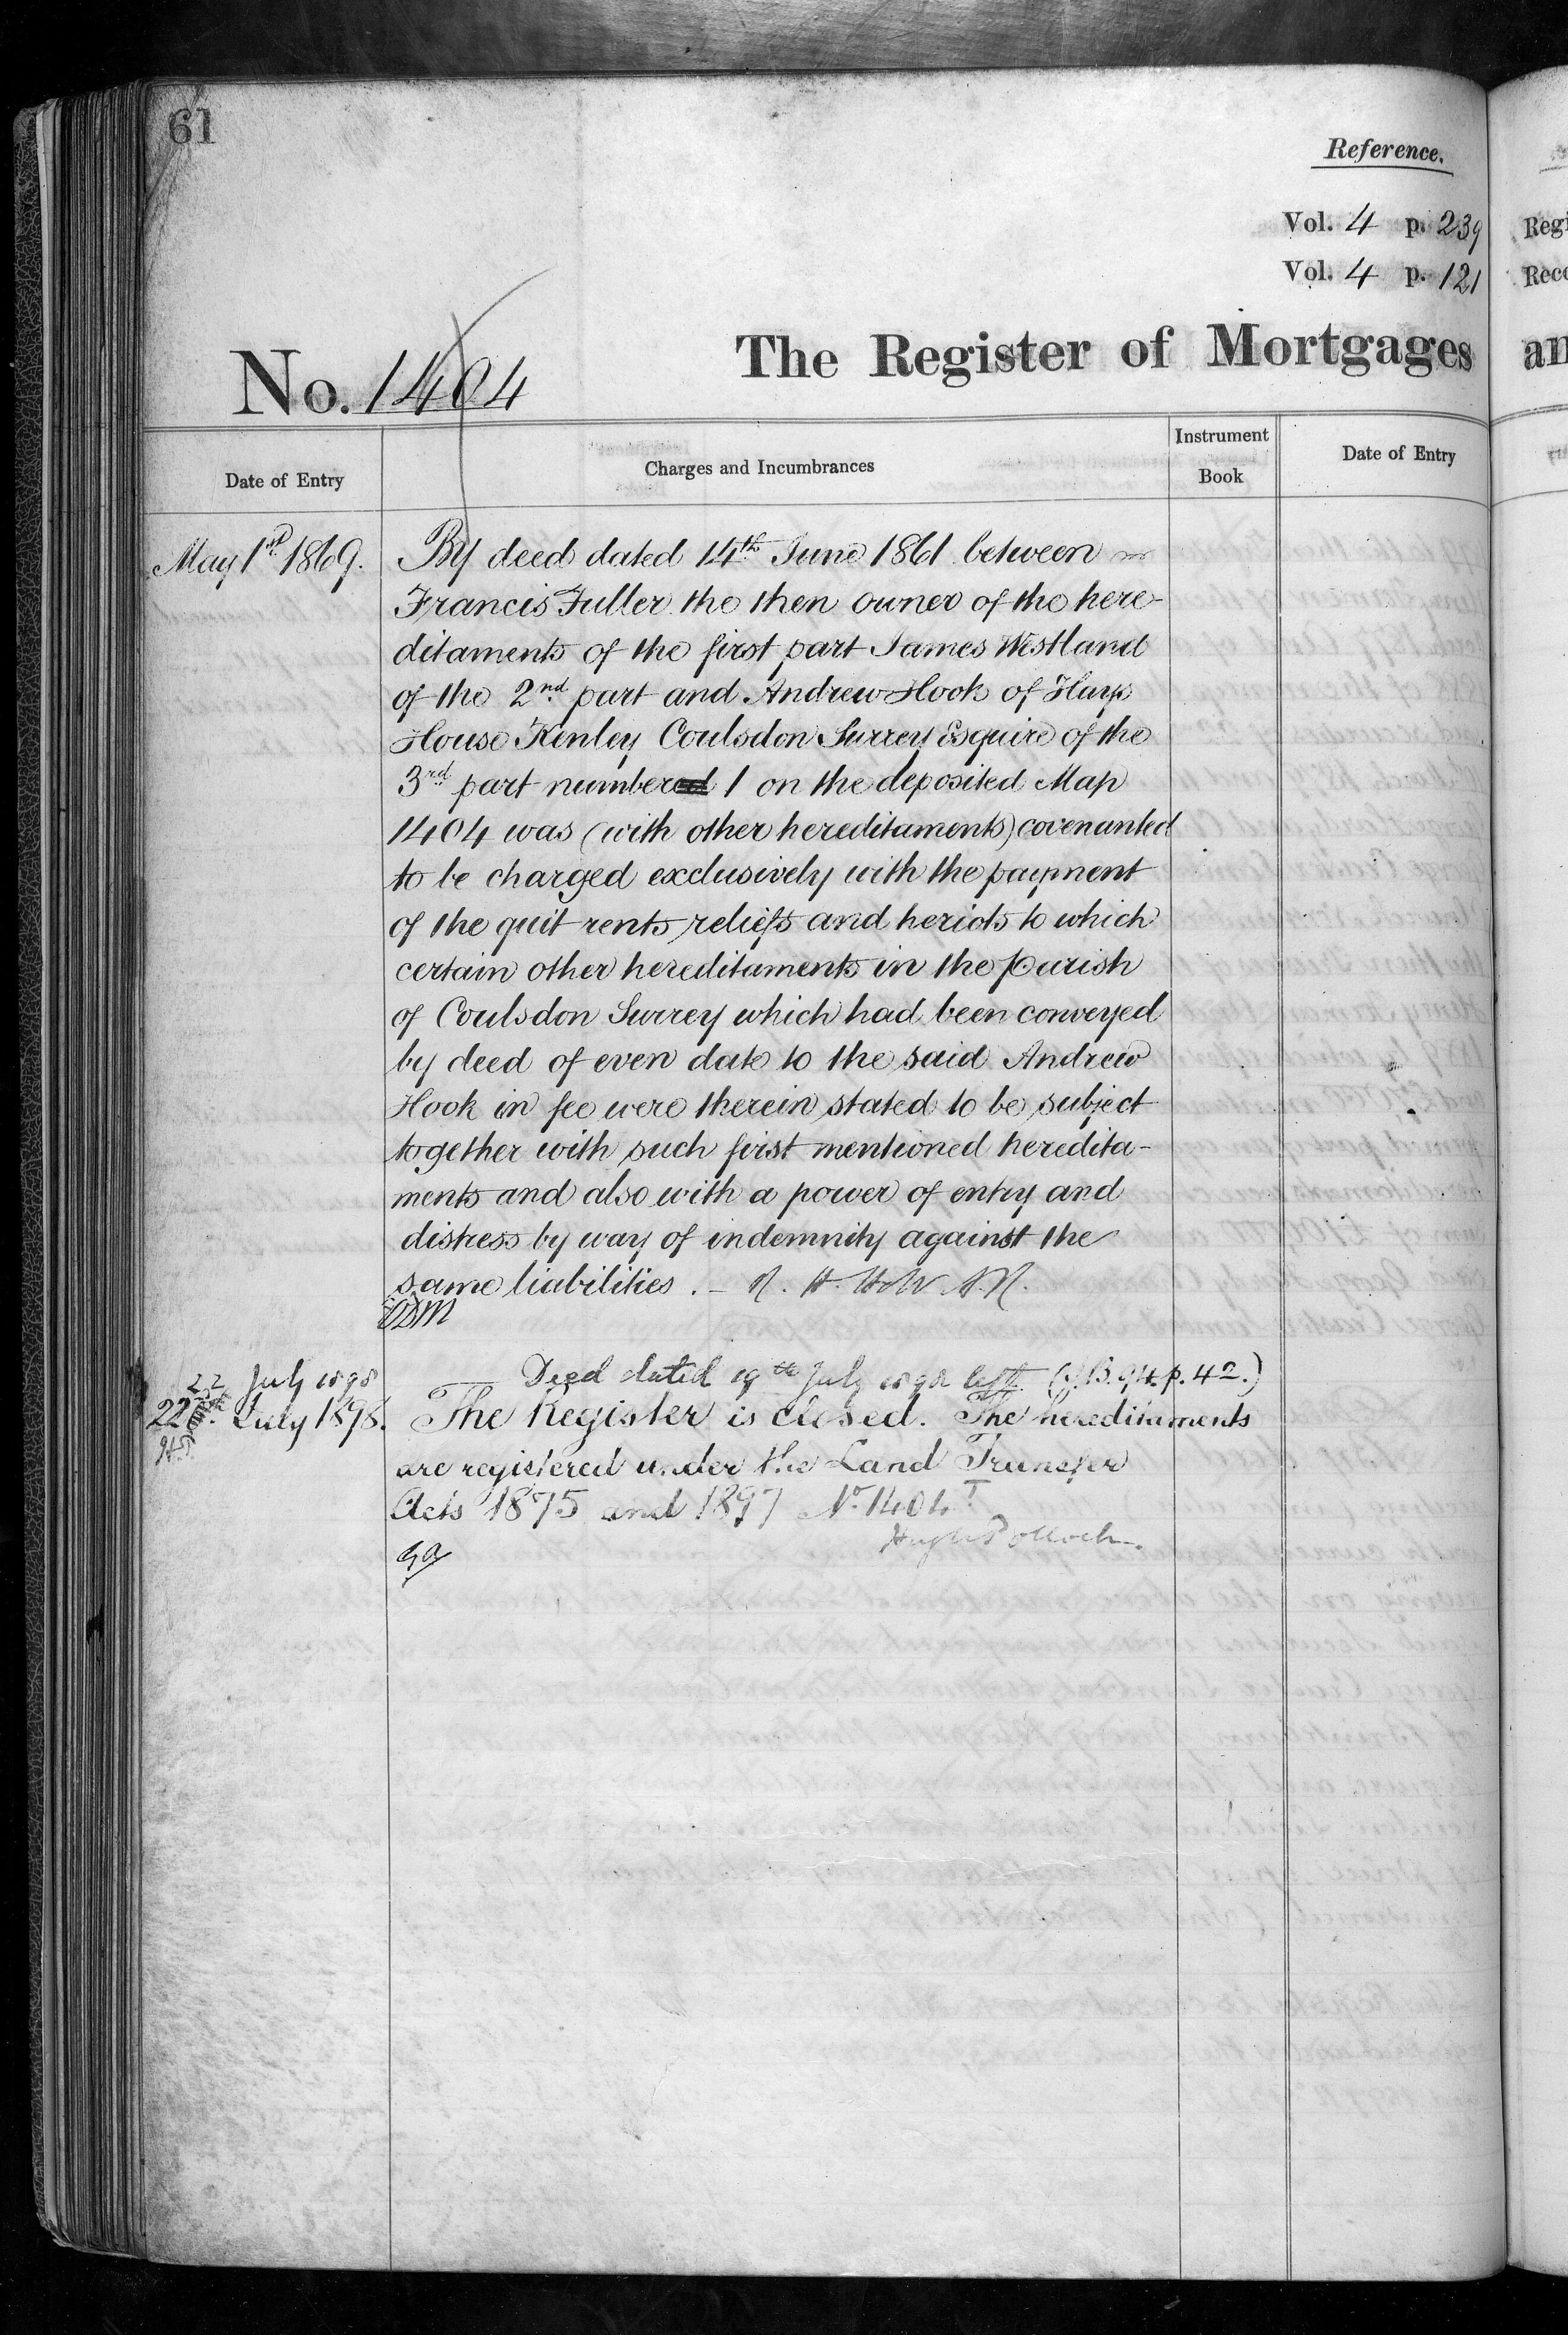 61
Reference.
Vol. 4 p. 239
Vol. 4 p. 121
No. 1404
The Register of Mortgages
Date of Entry
Charges and Incumbrances
Instrument
Book
Date of Entry
May 1st 1869.
By deed dated 14th June 1861 between
Francis Fuller the then owner of the here-
ditaments of the first part James Westland
of the 2nd part and Andrew Hook of Hays
House Kenley Coulsdon Surrey Esquire of the
3rd part numbered 1 on the deposited Map
1404 was (with other hereditaments) covenanted
to be charged exclusively with the payment
of the quit rents reliefs and heriots to which
certain other hereditaments in the Parish
of Coulsdon Surrey which had been conveyed
by deed of even date to the said Andrew
Hook in fee were therein stated to be subject
together with such first mentioned heredita-
ments and also with a power of entry and
distress by way of indemnity against the
same liabilities. –
22 July 1898
Deed dated 19th July 1898 left (I.B. 94 p. 42.)
22nd July 1898.
The Register is closed. The hereditaments
are registered under the Land Transfer
Acts 1875 and 1897 No. 1404T
Hugh Pollock.
Regi
Reco
an